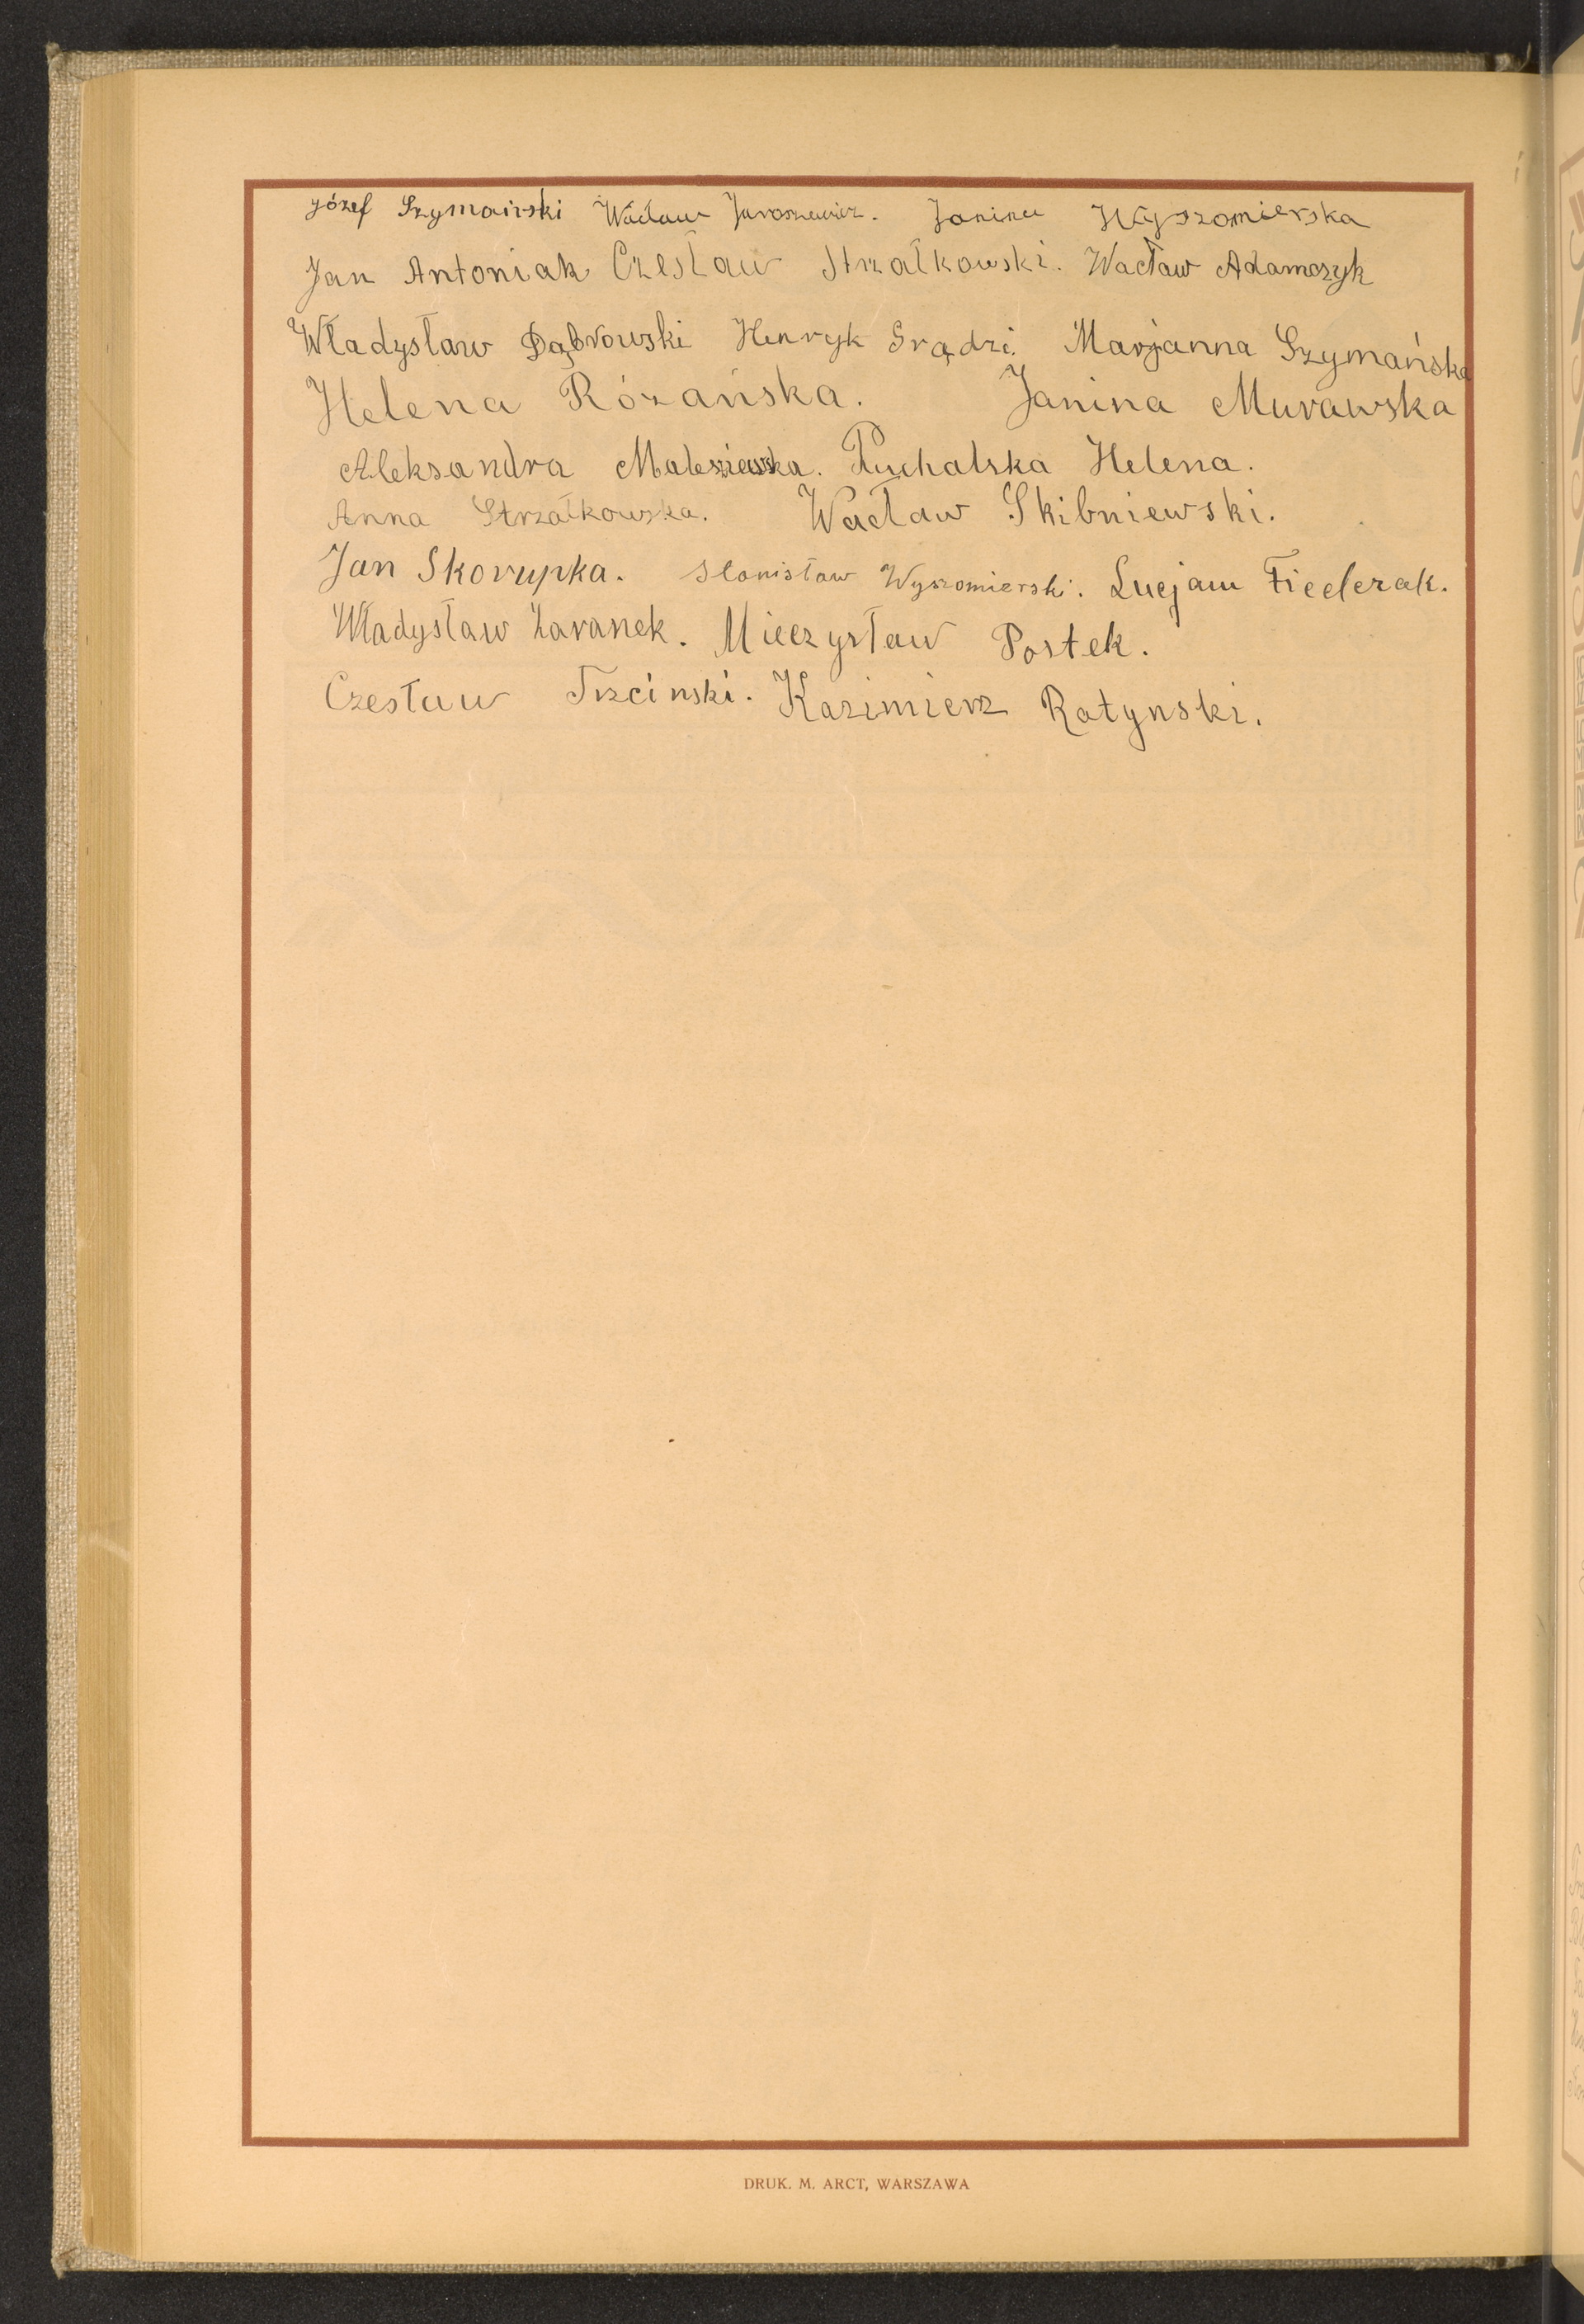 Józef Szymański Wacław Jaroszewicz. Janina Wyszomierska
Jan Antoniak Czesław Strzałkowski. Wacław Adamczyk
Władysław Dąbrowski Henryk Grądzi. Marjanna Szymańska
Helena Rózańska. Janina Murawska
Aleksandra Maleszewska. Puchalska Helena.
Anna Strzałkowska. Wacław Skibniewski.
Jan Skorupka. Stanisław Wyszomierski. Lucjan Fiederak.
Władysław Zaranek. Mieczysław Postek.
Czesław Trzcinski. Kazimierz Ratynski.
DRUK. M. ARCT, WARSZAWA